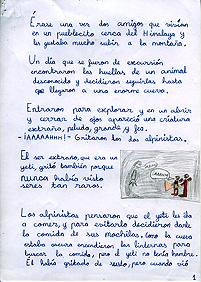 Érase una vez dos amigos que vivían
en un pueblecito cerca del Himalaya y
les gustaba mucho subir a la montaña.
Un día que se fueron de excursión
encontraron las huellas de un animal
desconocido y decidieron seguirlas hasta
que llegaron a una enorme cueva.
Entraron para explorar y en un abrir
y cerrar de ojos apareció una criatura
extraña, peluda, grande y fea.
-¡AAAAAHHH!- Gritaron los dos alpinistas.
El ser extraño, que era un
yeti, gritó también porque
nunca había visto
seres tan raros.
Los alpinistas pensaron que el yeti les iba
a comer y para evitarlo decidieron darle
la comida de sus mochilas. Como la cueva
estaba oscura encendieron las linternas para
buscar la comida, pero el yeti no tenía hambre.
Él había gritado de susto, pero cuando vió
1